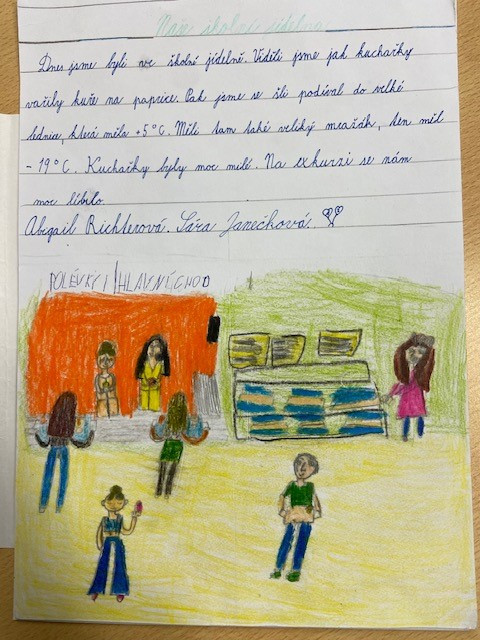 Naše školní jídelna
Dnes jsme byli ve školní jídelně. Viděli jsme jak kuchařky
vařily kuře na paprice. Pak jsme se šli podívat do velké
lednice, která měla +5°C. Měli tam také veliký mrazák, ten měl
- 19°C. Kuchařky byly moc milé. Na exkurzi se nám
moc líbilo.
Abigail Richterová. Sára Janečková.
POLÉVKY HLAVNÍ CHOD